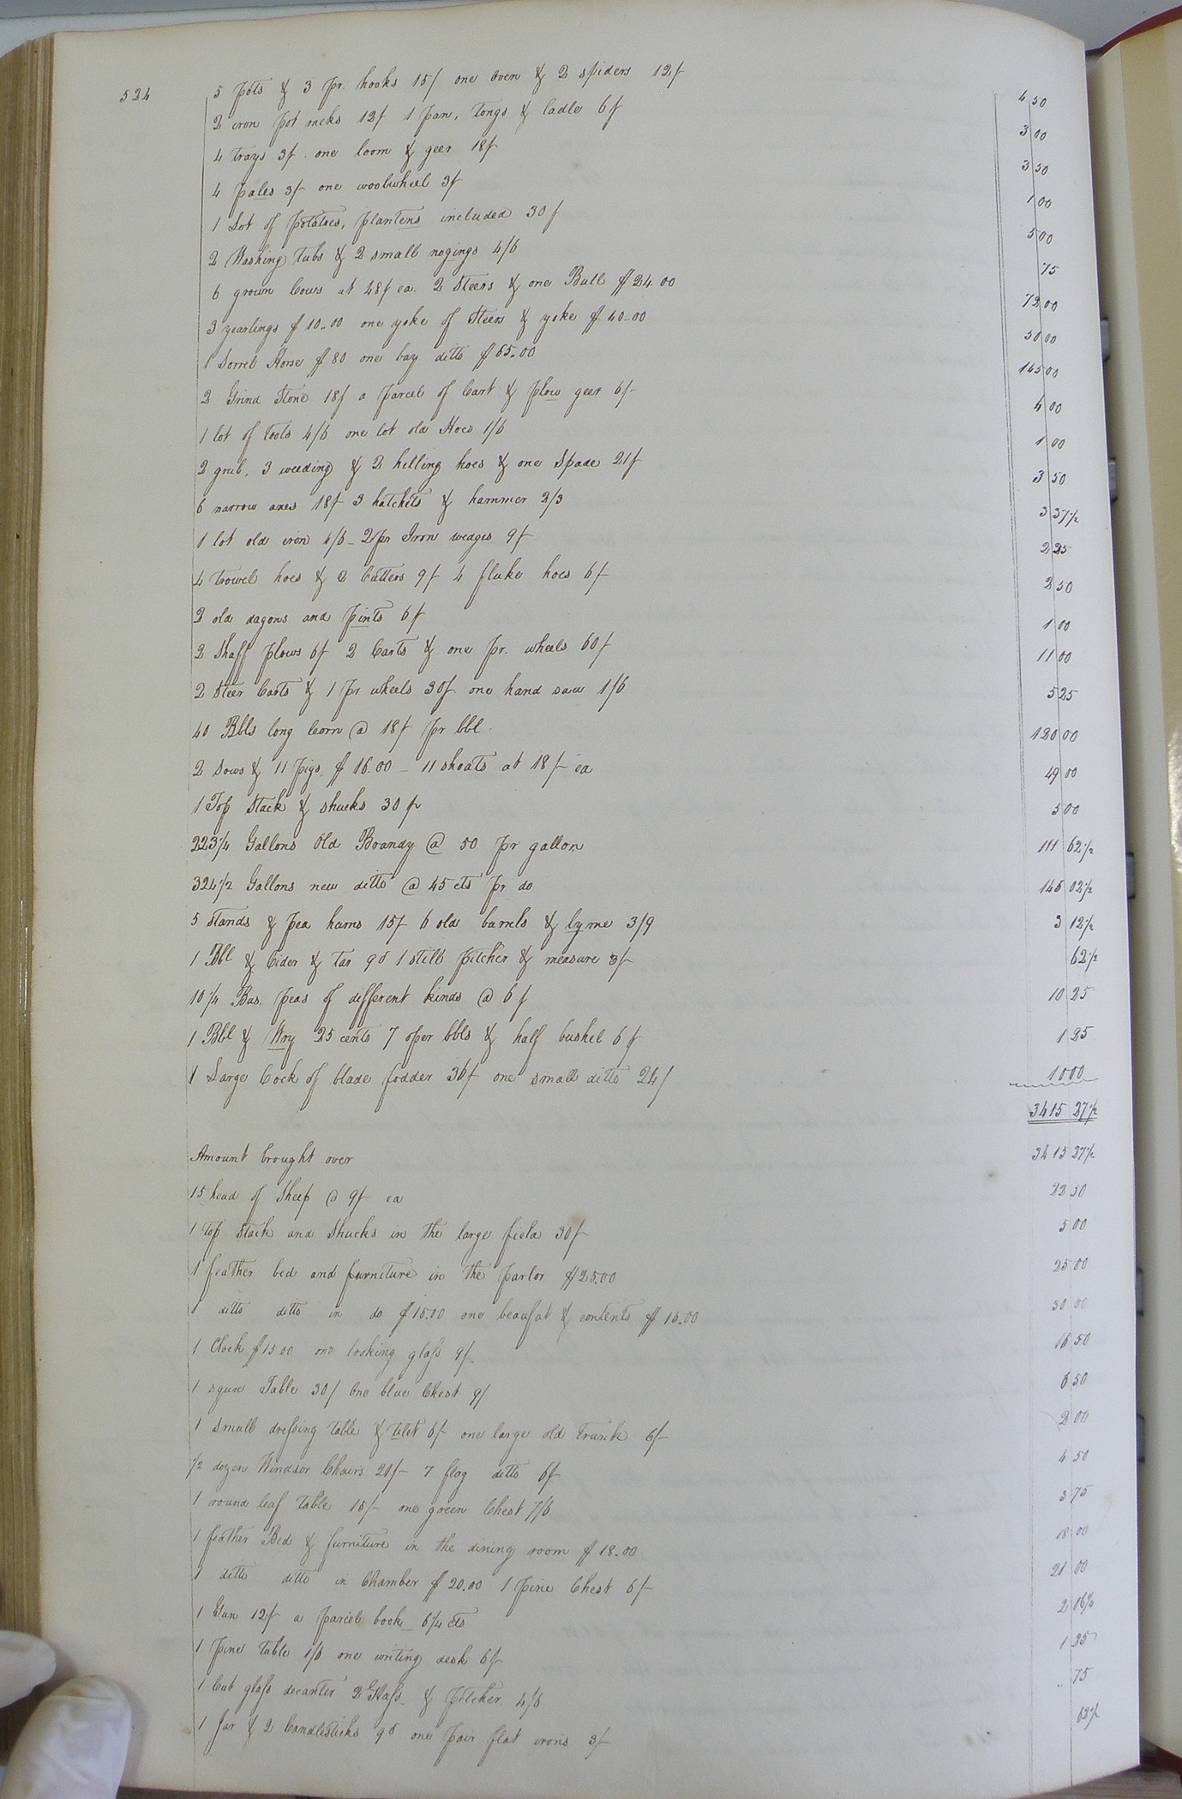 524
5 pots & 3 pr. hooks 15/ one oven & 2 spiders 12/ 4 50
2 iron pot racks 12/ 1 pan, tongs & ladle 6/ 3 00
4 trays 3/ one loom & geer 18/ 3 50
4 pales 3/ one woolwheel 3/ 1 00
1 Lot of potatoes, plantens included 30/ 5 00
2 Washing tubs & 2 small nogings 4/6 75
6 grown Cows at 48/ ea. 2 Steers & one Bull $24.00 72 00
3 yearlings $10.00 one yoke of Steers & yoke $40.00 50 00
1 Sorrel Horse $80 one bay ditto $65.00 145 00
2 Grind Stone 18/ a parcel of Cart & plow geer 6/ 4 00
1 lot of tools 4/6 one lot old Hoes 1/6 1 00
2 grub, 3 weeding & 2 hilling hoes & one Spade 21/ 3 50
6 narrow axes 18/ 3 hatchets & hammer 2/3 3 37½
1 lot old iron 4/6 - 2 pr Iron wedges 9/ 2 25
4 trowel hoes & 2 Cutters 9/ 4 fluke hoes 6/ 2 50
2 old dagons and pints 6/ 1 00
2 Shaff plows 6/ 2 Carts & one pr. wheels 60/ 11 00
2 Steer Carts & 1 pr wheels 30/ one hand saw 1/6 5 25
40 Bbls long Corn @ 18/ pr bbl. 120 00
2 Sows & 11 Pigs $16.00 - 11 shoats at 18/ ea 49 00
1 Top Stack & shucks 30/ 5 00
223¼ Gallons Old Brandy @ 50 pr gallon 111 62½
324½ Gallons new ditto @ 45 cts pr do 146 02½
5 stands & pea hums 15/ 6 old barrels & lyme 3/9 3 12½
1 Bbl & Cider & tar 9d 1 still pitcher & measure 3/ 62½
10¼ Bus. peas of different kinds @ 6/ 10 25
1 Bbl & Wry 25 cents 7 oper bbls & half bushel 6/ 1 25
1 Large Cock of blade fodder 36/ one small ditto 24/ 10 00
3415 27½
Amount brought over 3415 27½
15 head of Sheep @ 9/ ea 22 50
1 top Stack and Shucks in the large field 30/ 5 00
1 feather bed and furniture in the parlor $25.00 25 00
1 ditto ditto in do $15.00 one beaufat & contents $15.00 30 00
1 Clock $15.00 one looking glass 9/. 16 50
1 squre Table 30/ One blue Chest 9/ 6 50
1 small dressing table & tilet 6/ one large old Trunk 6/ 2 00
½ dozen Windsor Chairs 21/ 7 flag ditto 6/ 4 50
1 round leaf table 15/ one green Chest 7/6 3 75
1 feather Bed & furniture in the dining room $18.00 18 00
1 ditto ditto in Chamber $20.00 1 pine Chest 6/ 21 00
1 Gun 12/ a parcel book 6¼ cts 2
1 pine table 1/6 one writing desk 6/ 1 25
1 Cut glass decanter 2 Glass & pitcher 4/6 75
1 Jar & 2 Candlesticks 9d one pair flat irons 3/ 62½